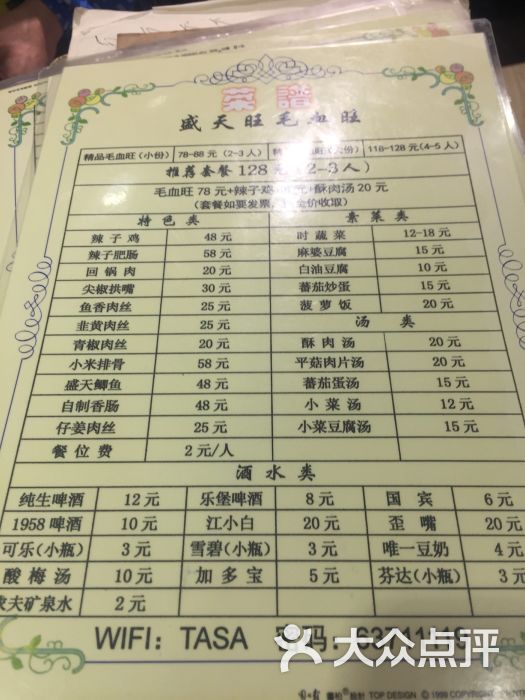 菜譜
盛天旺毛血旺
精品毛血旺(小份) 78-88元(2-3人) 118-128元(4-5人)
推荐套餐128元(2-3人)
毛血旺 78元+辣子鸡 酥肉汤 20元
(套餐如要发票, 价收取)
特色类 素菜类
辣子鸡 48元 时蔬菜 12-18元
辣子肥肠 58元 麻婆豆腐 15元
回锅肉 20元 白油豆腐 10元
尖椒拱嘴 30元 蕃茄炒蛋 15元
鱼香肉丝 25元 菠萝饭 20元
韭黄肉丝 25元 汤类
青椒肉丝 20元 酥肉汤 20元
小米排骨 58元 平菇肉片汤 20元
盛天鲫鱼 48元 蕃茄蛋汤 15元
自制香肠 48元 小菜汤 12元
仔姜肉丝 25元 小菜豆腐汤 15元
餐位费 2元/人
酒水类
纯生啤酒 12元 乐堡啤酒 8元 国宾 6元
1958啤酒 10元 江小白 20元 歪嘴 20元
可乐(小瓶) 3元 雪碧(小瓶) 3元 唯一豆奶 4元
酸梅汤 10元 加多宝 5元 芬达(小瓶) 3元
农夫矿泉水 2元
WIFI: TASA
大众点评
設計 TOP DESIGN © 1999 COPYRIGHT